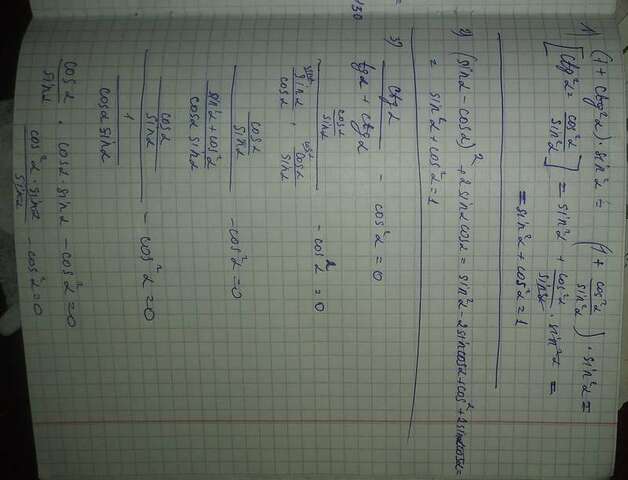 130
1) (1 + ctg²α) · sin²α = (1 + cos²α/sin²α) · sin²α =
[ctg²α = cos²α/sin²α] = sin²α + cos²α/sin²α · sin²α =
= sin²α + cos²α = 1
2) (sinα - cosα)² + 2sinα cosα = sin²α - 2sinα cosα + cos² + 2sinα cosα =
= sin²α + cos²α = 1
3) ctgα/(tgα + ctgα) - cos²α = 0
(cosα/sinα)/(sinα/cosα + cosα/sinα) - cos²α = 0
(cosα/sinα)/((sin²α + cos²α)/(cosα sinα)) - cos²α = 0
(cosα/sinα)/(1/(cosα sinα)) - cos²α = 0
cosα/sinα · cosα · sinα - cos²α = 0
cos²α · sinα/sinα - cos²α = 0